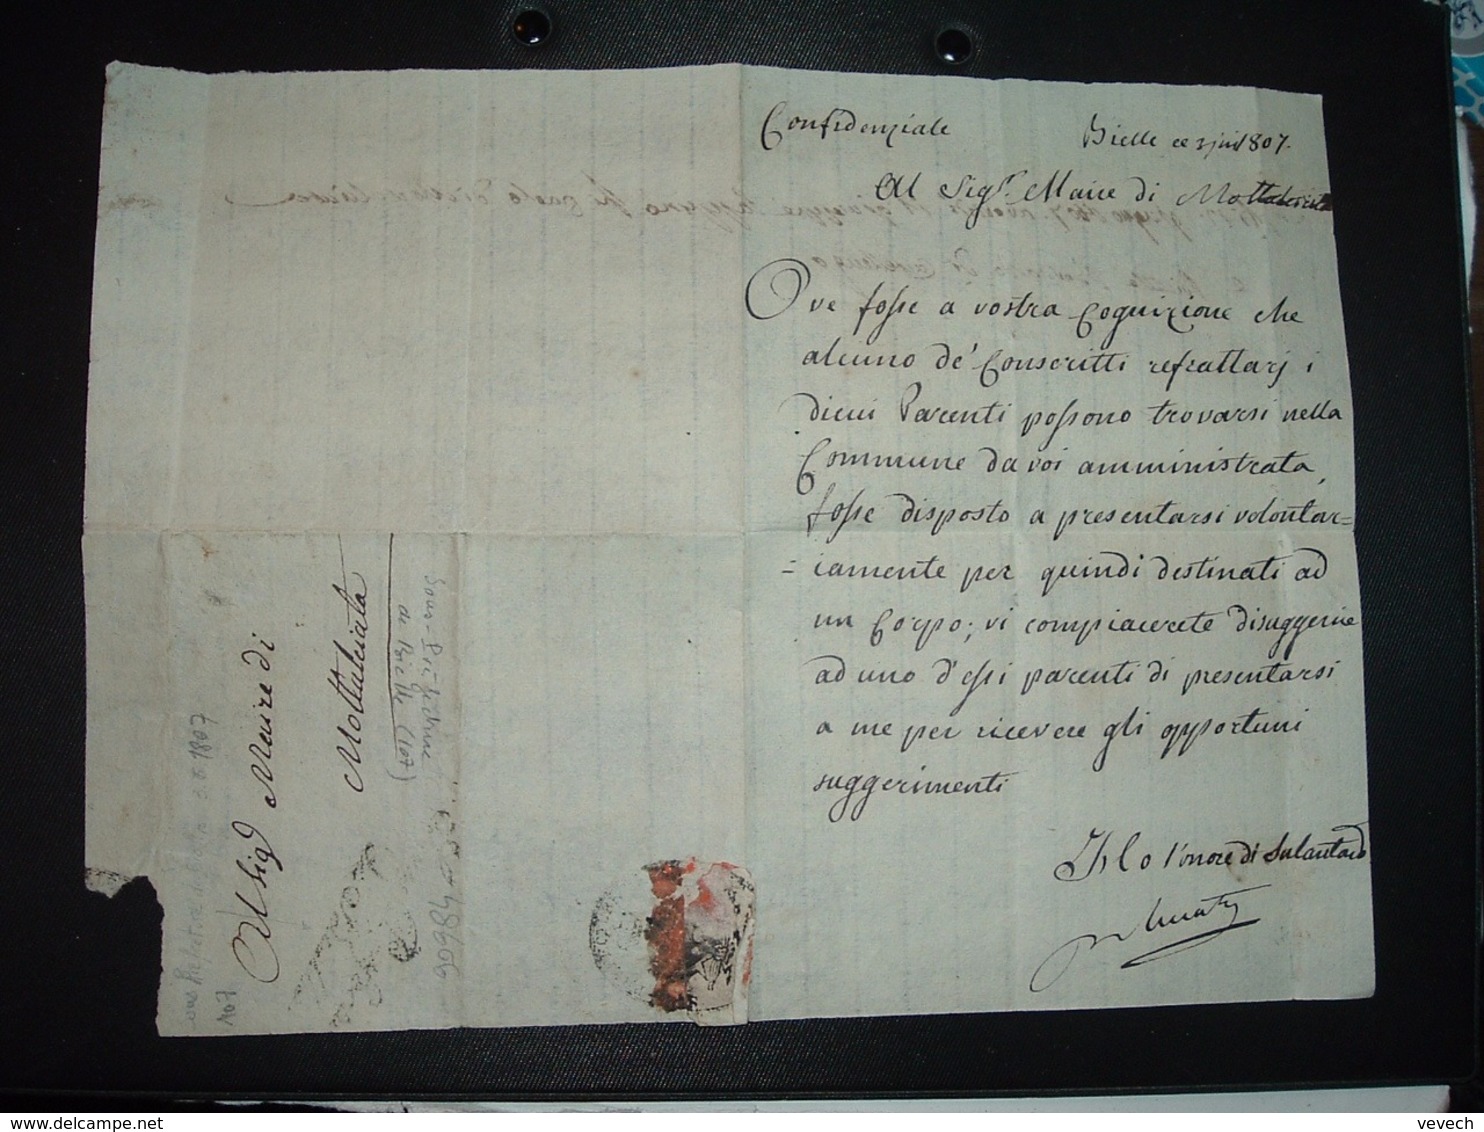 Confidenziale
Bielle ce 3 juin 1807.
Al Sigr. Maire di Mottalciata
Ove fosse a vostra Cognizione che
alcuno de' Conscritti refrattarj i
dicui Parenti possono trovarsi nella
Commune da voi amministrata,
fosse disposto a presentarsi volontar=
=iamente per quindi destinati ad
un Corpo; vi compiacerete disuggerire
ad uno d'essi parenti di presentarsi
a me per ricevere gli opportuni
suggerimenti
Ho l'onore di Salutarvi
Al Sigr
Maire di
Mottalciata
Sous-Préfecture
de Bielle (107)
3.6.1807
107
vevech